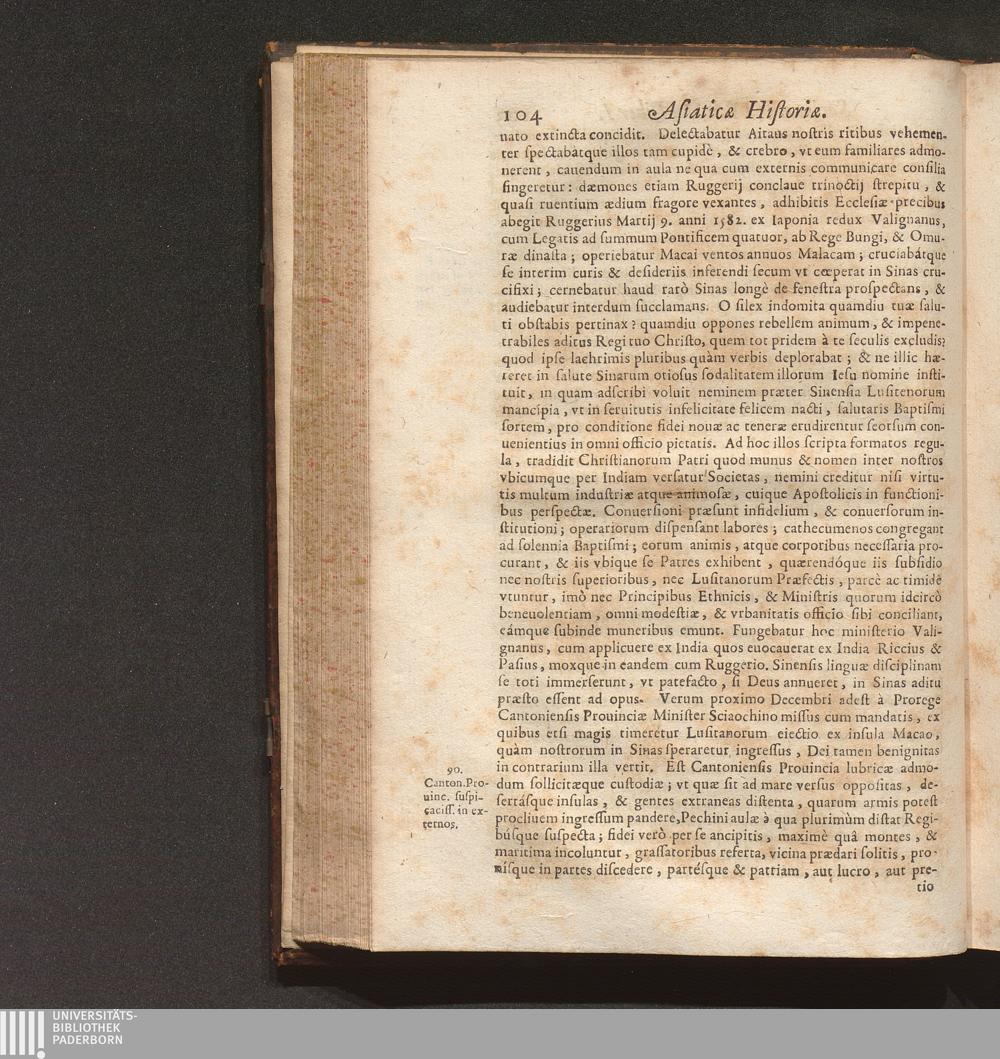 104 Asiaticæ Historiæ.
uato extincta concidit. Delectabatur Aitaus nostris ritibus vehemen-
ter spectabàtque illos tam cupidè, & crebro, vt eum familiares admo-
nerent, cauendum in aula ne qua cum externis communicare consilia
fingeretur: dæmones etiam Ruggerij conclaue trinoctij strepitu, &
quasi ruentium ædium fragore vexantes, adhibitis Ecclesiæ precibus
abegit Ruggerius Martij 9. anni 1582. ex Iaponia redux Valignanus,
cum Legatis ad summum Pontificem quatuor, ab Rege Bungi, & Omu-
ræ dinasta; operiebatur Macai ventos annuos Malacam; cruciabátque
se interim curis & desideriis inferendi secum vt cœperat in Sinas cru-
cifixi; cernebatur haud rarò Sinas longè de fenestra prospectans, &
audiebatur interdum succlamans. O silex indomita quamdiu tuæ salu-
ti obstabis pertinax? quamdiu oppones rebellem animum, & impene-
trabiles aditus Regi tuo Christo, quem tot pridem à te seculis excludis?
quod ipse lachrimis pluribus quàm verbis deplorabat; & ne illic hæ-
reret in salute Sinarum otiosus sodalitatem illorum Iesu nomine insti-
tuit, in quam adscribi voluit neminem præter Sinensia Lusitenorum
mancipia, vt in seruitutis infelicitate felicem nacti, salutaris Baptismi
sortem, pro conditione fidei nouæ ac teneræ erudirentur seorsum con-
uenientius in omni officio pietatis. Ad hoc illos scripta formatos regu-
la, tradidit Christianorum Patri quod munus & nomen inter nostros
vbicumque per Indiam versatur Societas, nemini creditur nisi virtu-
tis multum industriæ atque animosæ, cuique Apostolicis in functioni-
bus perspectæ. Conuersioni præsunt infidelium, & conuersorum in-
stitutioni; operariorum dispensant labores; cathecumenos congregant
ad solennia Baptismi; eorum animis, atque corporibus necessaria pro-
curant, & iis vbique se Patres exhibent, quærendóque iis subsidio
nec nostris superioribus, nec Lusitanorum Præfectis, parcè ac timidè
vtuntur, imò nec Principibus Ethnicis, & Ministris quorum idcircò
beneuolentiam, omni modestiæ, & vrbanitatis officio sibi conciliant,
eámque subinde muneribus emunt. Fungebatur hoc ministerio Vali-
gnanus, cum applicuere ex India quos euocauerat ex India Riccius &
Pasius, moxque in eandem cum Ruggerio. Sinensis linguæ disciplinam
se toti immerserunt, vt patefacto, si Deus annueret, in Sinas aditu
præsto essent ad opus. Verum proximo Decembri adest à Prorege
Cantoniensis Prouinciæ Minister Sciaochino missus cum mandatis, ex
quibus etsi magis timeretur Lusitanorum eiectio ex insula Macao,
quàm nostrorum in Sinas speraretur ingressus, Dei tamen benignitas
in contrarium illa vertit. Est Cantoniensis Prouincia lubricæ admo-
dum sollicitæque custodiæ; vt quæ sit ad mare versus oppositas, de-
sertásque insulas, & gentes extraneas distenta, quarum armis potest
procliuem ingressum pandere, Pechini aulæ à qua plurimùm distat Regi-
búsque suspecta; fidei verò per se ancipitis, maximè quâ montes, &
maritima incoluntur, grassatoribus referta, vicina prædari solitis, pro-
nísque in partes discedere, partésque & patriam, aut lucro, aut pre-
tio
90.
Canton. Pro-
uinc. suspi-
caciss. in ex-
ternos.
UNIVERSITÄTS-
BIBLIOTHEK
PADERBORN